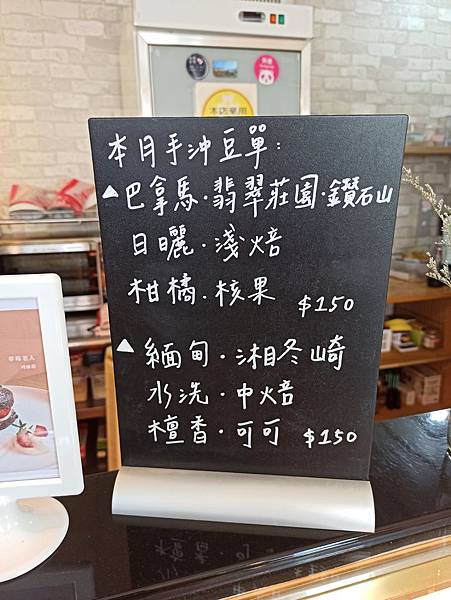 本店榮用
本月手沖豆單:
▲巴拿馬·翡翠莊園·鑽石山
日曬·淺焙
柑橘·核果 $150
▲緬甸·湘冬崎
水洗·中焙
檀香·可可 $150